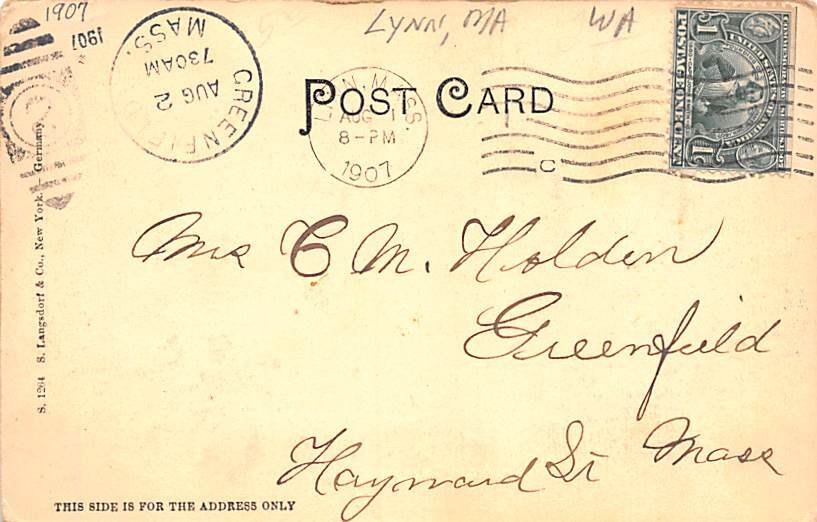 1907
LYNN, MA WA
1907
GREENFIELD
MASS.
AUG 2
730AM
POST CARD
LYNN, MASS.
AUG 1
8-PM
1907
C
1 1
UNITED STATES OF AMERICA
POSTAGE ONE CENT
Mrs C M. Holden
Greenfield
Hayward St Mass
S. 1264 S. Langsdorf & Co., New York. — Germany.
THIS SIDE IS FOR THE ADDRESS ONLY